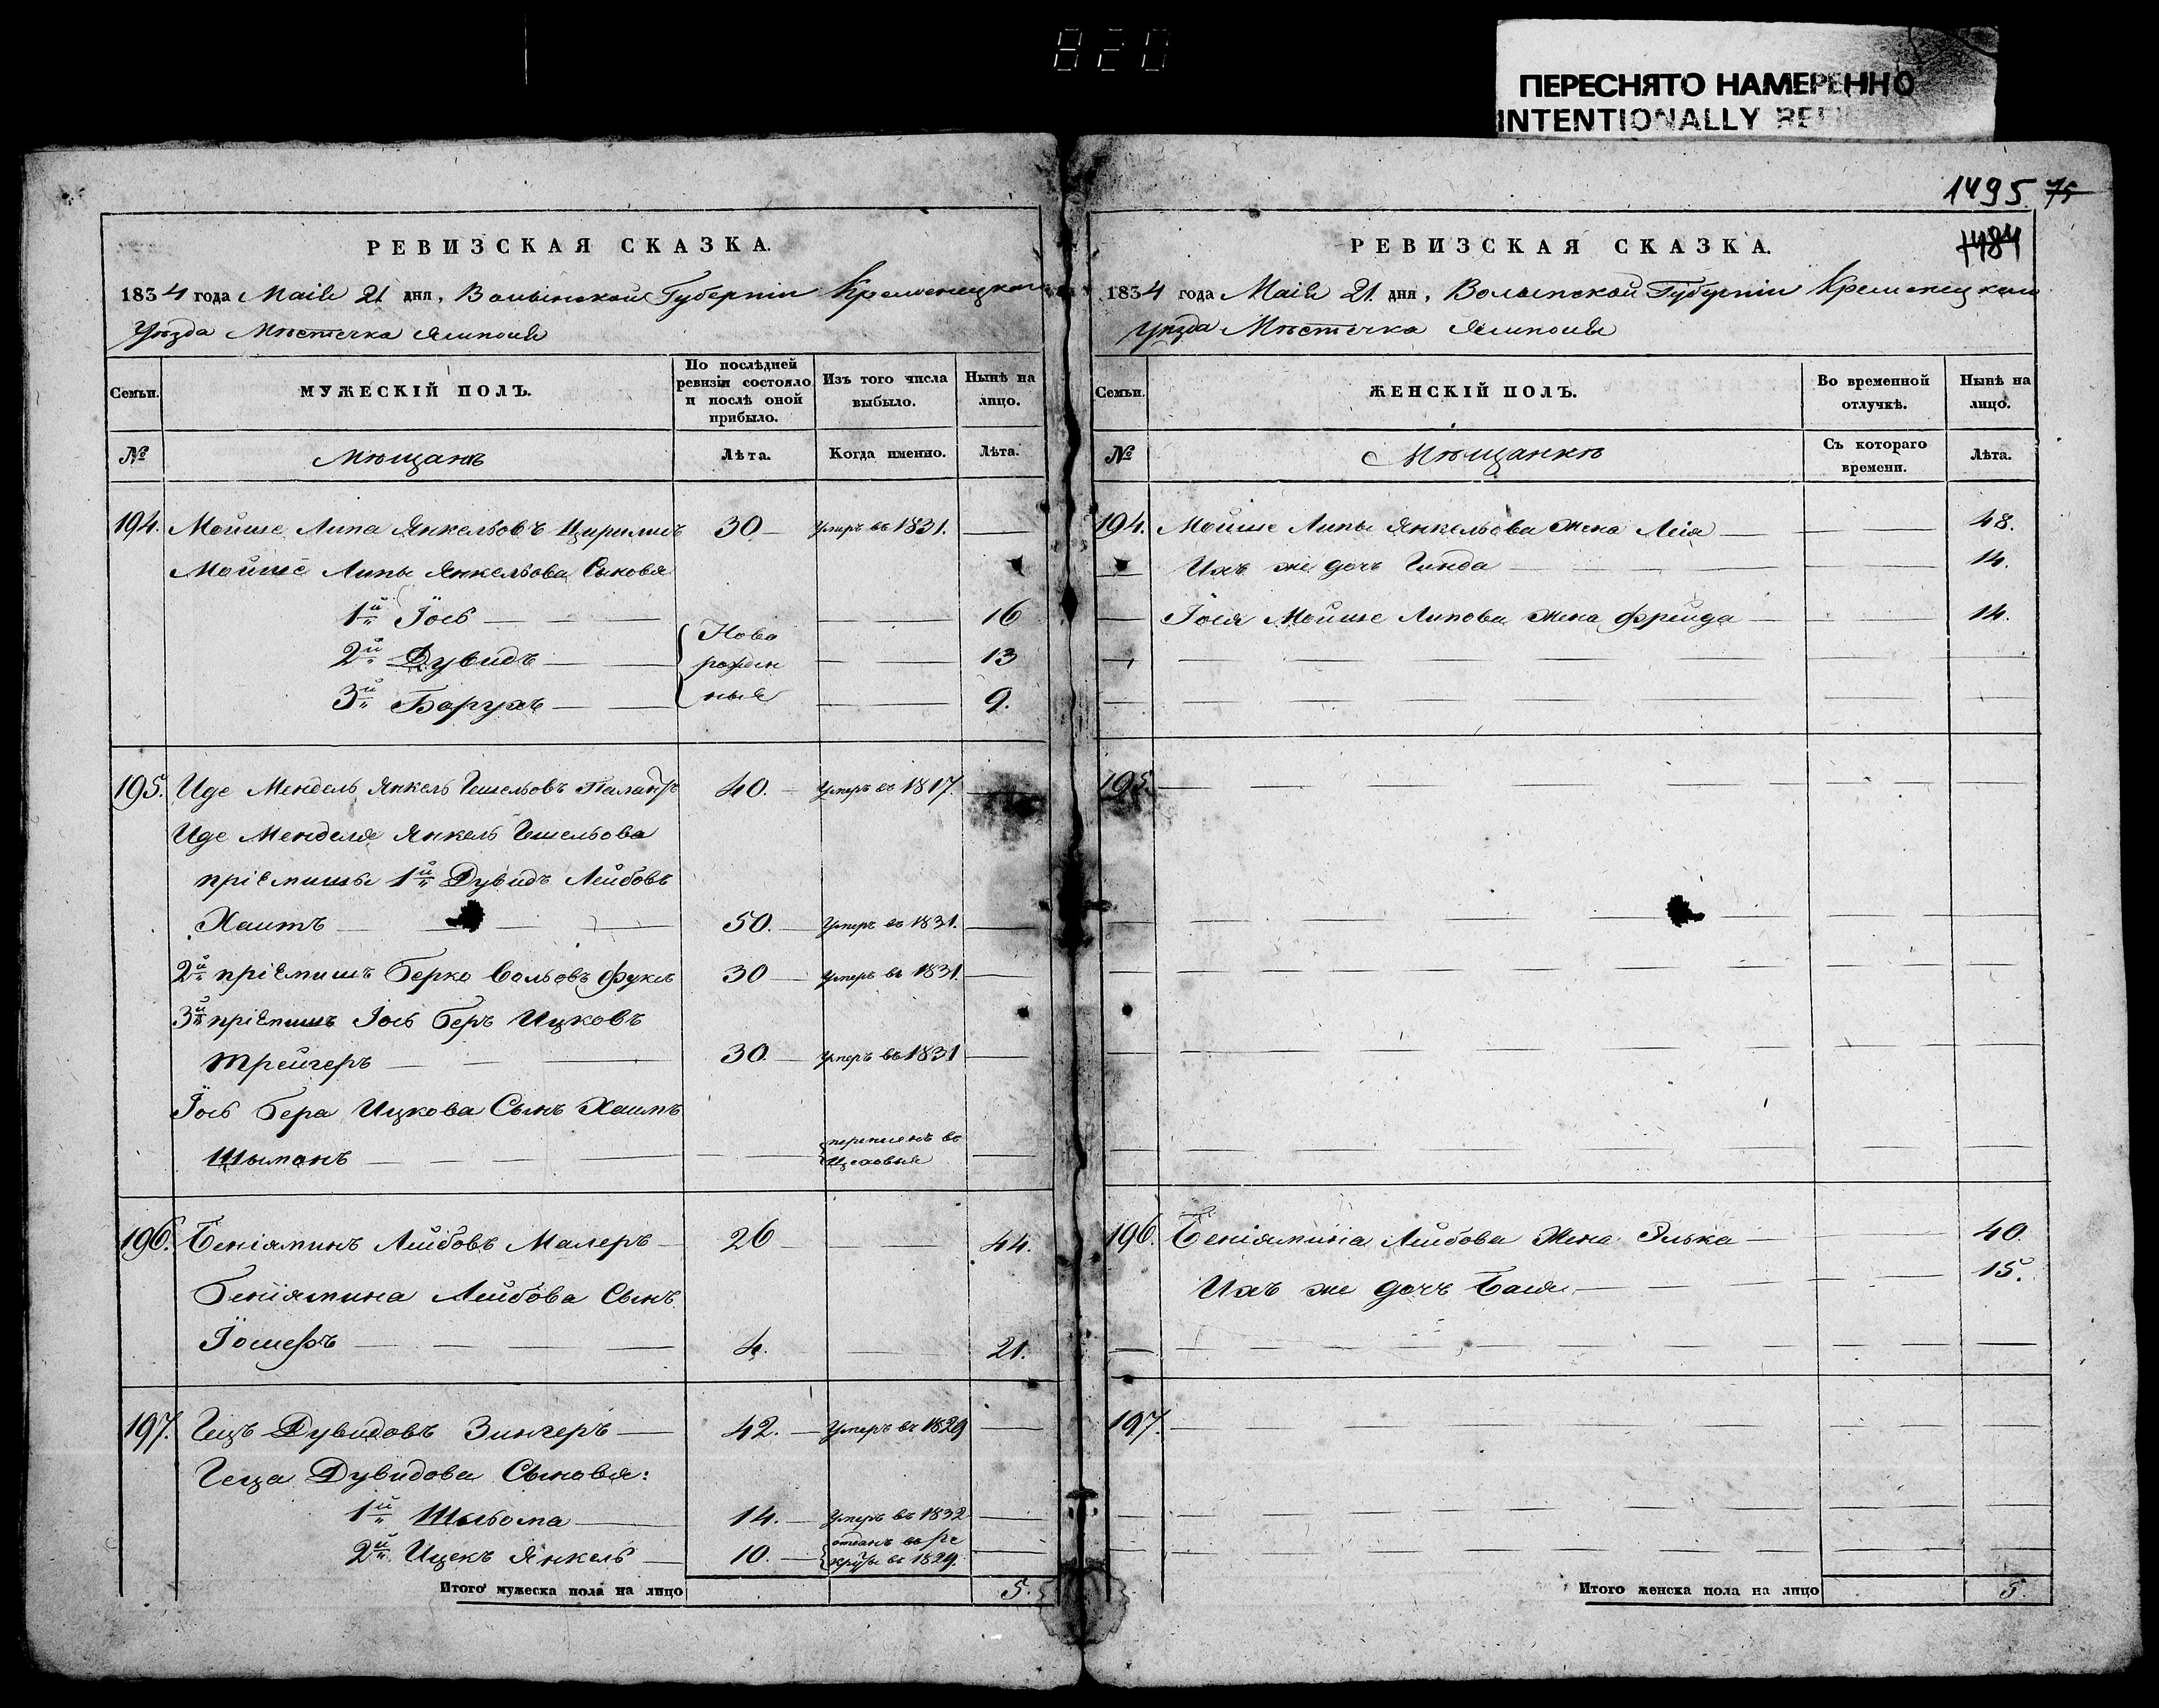 820
ПЕРЕСНЯТО НАМЕРЕННО
INTENTIONALLY
1495 75
1484
РЕВИЗСКАЯ СКАЗКА.
1834 года Маія 21 дня, Волынской Губерніи Кременецкого
Уѣзда Мѣстечка Ямполя
Семьи.
МУЖЕСКІЙ ПОЛЪ.
По послѣдней ревизіи состояло и послѣ оной прибыло.
Изъ того числа выбыло.
Нынѣ на лицо.
№
Мѣщанъ
Лѣта.
Когда именно.
Лѣта.
194. Мойше Липа Янкельовъ 30 умеръ въ 1831.
Мойше Липы Янкельова Сыновя
1й Іось 16
2й Дувидъ 13
3й Борухъ 9.
Ново
рожден
ныя
195. Иде Мендель Янкель Гешельовъ 40. Умеръ въ 1817.
Иде Менделя Янкель Гешельова
пріемыши 1й Дувидъ Лейбовъ
Хаитъ 50. Умеръ въ 1831.
2й пріемышъ Берко Вольовъ Фуксъ 30 умеръ въ 1831.
3й пріемышъ Іось Беръ Ицковъ
Трейгеръ 30. умеръ въ 1831
Іось Бера Ицкова Сынъ Хаимъ
Шымонъ
переписанъ въ
Цеховыя
196. Беніяминъ Лейбовъ Малеръ 26 44.
Беніямина Лейбова Сынъ
Іошефъ 4. 21.
197. Гецъ Дувидовъ Зингеръ 42. Умеръ въ 1829
Геца Дувидова Сыновя:
1й Шлїома 14. Умеръ въ 1832
2й Ицекъ Янкель 10. отданъ въ ре
круты въ 1829.
Итого мужеска пола на лицо 5.
РЕВИЗСКАЯ СКАЗКА.
1834 года Маія 21 дня, Волынской Губерніи Кременецкого
Уѣзда Мѣстечка Ямполя
Семьи.
ЖЕНСКІЙ ПОЛЪ.
Во временной отлучкѣ.
Нынѣ на лицо.
№
Мѣщанкѣ
Съ котораго времени.
Лѣта.
194. Мойше Липы Янкельова жена Лея 48.
Ихъ же дочъ Гинда 14.
Іося Мойше Липова жена Фрейда 14.
195.
196. Беніямина Лейбова Жена Элька 40.
Ихъ же дочъ Бася 15.
197.
Итого женска пола на лицо 5.